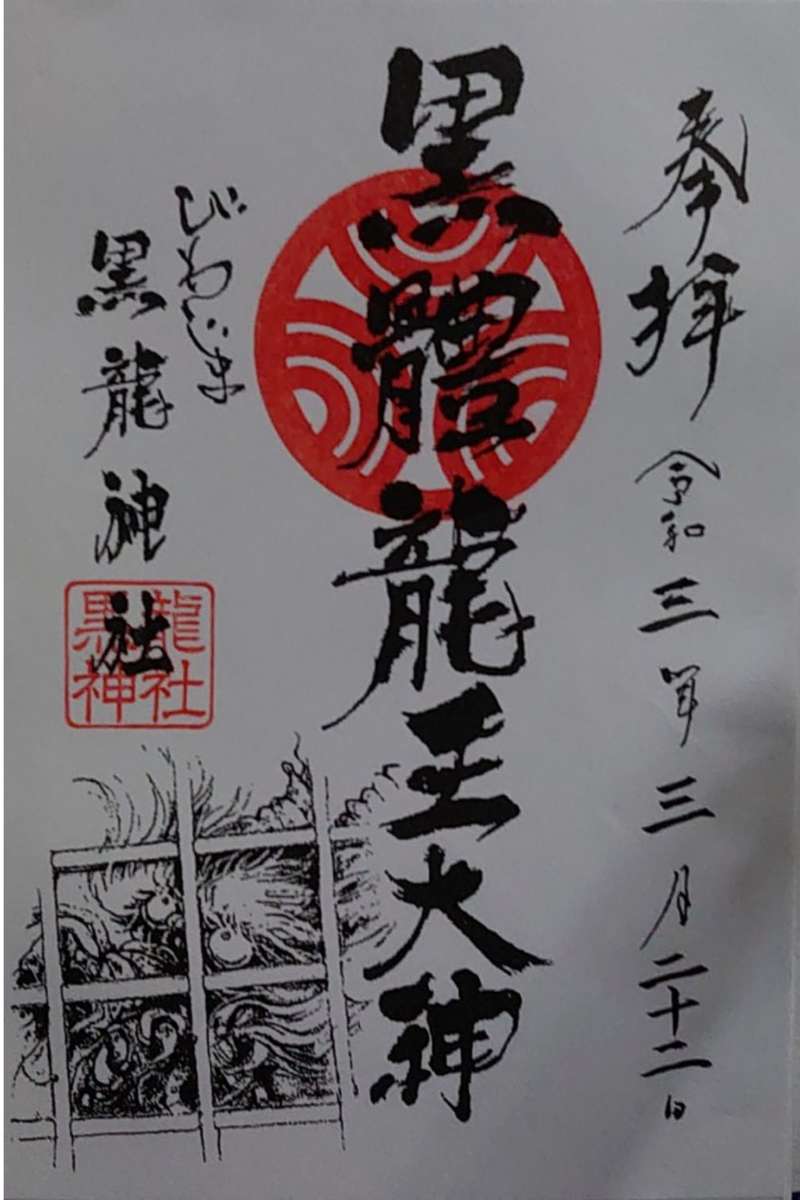 奉拝 令和三年三月二十二日
黒體龍王大神
びわじま
黒龍神社
黒龍
神社